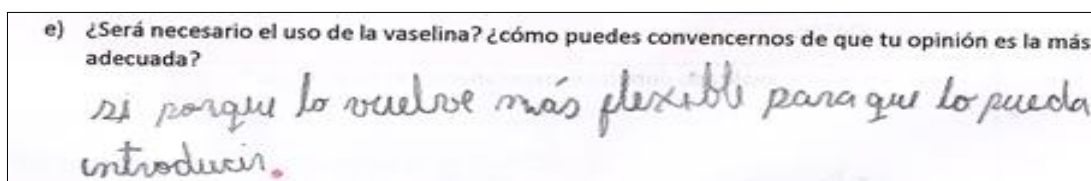 e) ¿Será necesario el uso de la vaselina? ¿cómo puedes convencernos de que tu opinión es la más
adecuada?
si porque lo vuelve más flexible para que lo pueda
introducir.